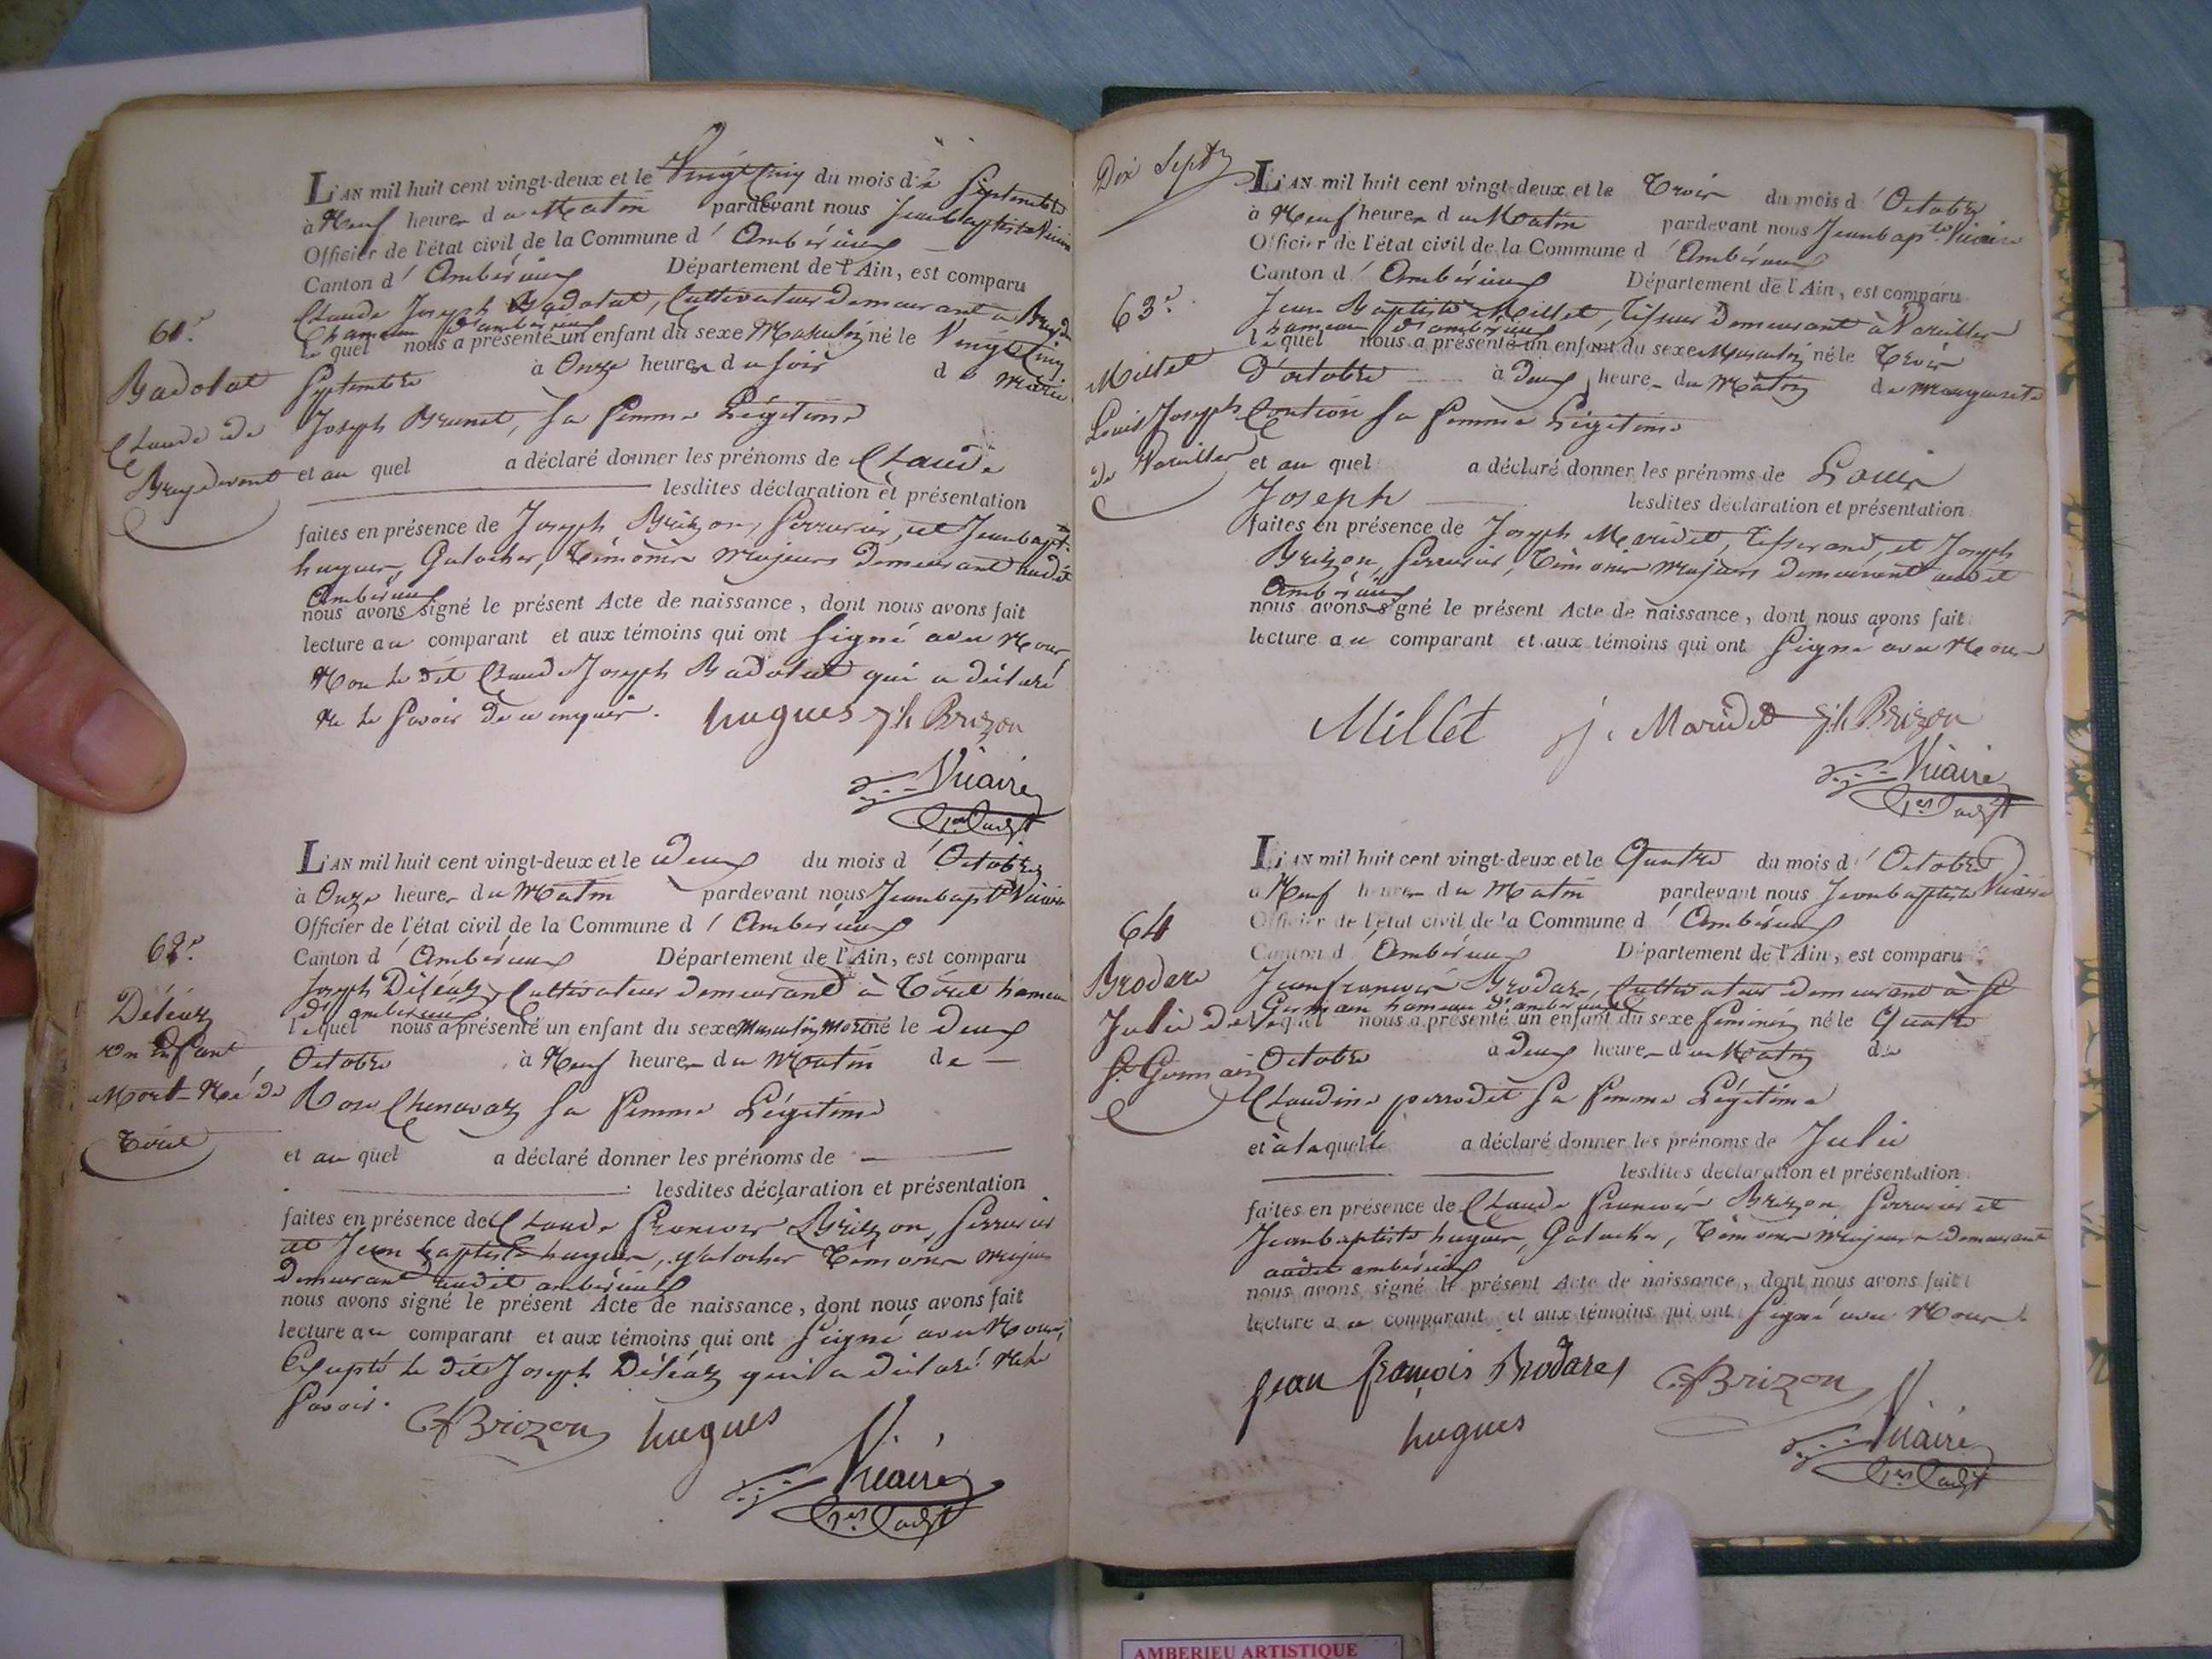 L'AN mil huit cent vingt-deux et le Vingt Cinq du mois de Septembre
à Neuf heures du Matin pardevant nous Jeanbaptiste Vicaire
Officier de l'état civil de la Commune d' Ambérieux
Canton d' Ambérieux Département de l'Ain, est comparu
Claude Joseph Badolat, Cultivateur demeurant à
hameau d'ambérieux
61e.
lequel nous a présenté un enfant du sexe Masculin né le Vingt Cinq
Badolat
Septembre à Onze heures du soir de Marie
Claude de
Joseph Brunet, sa femme Légitime
Breydevent
et au quel a déclaré donner les prénoms de Claude
lesdites déclaration et présentation
faites en présence de Joseph Brizon, serrurier, et Jeanbapt.
hugues, Galocher, témoins majeurs demeurant audit
Ambérieux
nous avons signé le présent Acte de naissance, dont nous avons fait
lecture au comparant et aux témoins qui ont signé avec Nous
Non le dit Claude Joseph Badolat qui a déclaré
Ne le savoir de ce enquis.
hugues jh Brizon
Vicaire
L'AN mil huit cent vingt-deux et le deux du mois d' Octobre
à Onze heures du Matin pardevant nous Jeanbapte Vicaire
Officier de l'état civil de la Commune d' Ambérieux
62e.
Canton d' Ambérieux Département de l'Ain, est comparu
Joseph Déléaz, Cultivateur demeurant à Tiret hameau
d'ambérieux
Déléaz
lequel nous a présenté un enfant du sexe Masculin Mort né le deux
un Enfant
Octobre à Neuf heures du Matin de
Mort-Né de
Rose Chenavaz sa femme Légitime
Tiret
et au quel a déclaré donner les prénoms de
lesdites déclaration et présentation
faites en présence de Claude françois Brizon, serrurier
et Jean baptiste hugues, galocher témoins majeurs
demeurant audit ambérieux
nous avons signé le présent Acte de naissance, dont nous avons fait
lecture au comparant et aux témoins qui ont signé avec Nous,
Excepté le dit Joseph Déléaz qui a déclaré Ne le
savoir.
CfBrizon hugues
Vicaire
Dix Sept
L'AN mil huit cent vingt-deux et le Trois du mois d' Octobre
à Neuf heures du Matin pardevant nous Jeanbapte Vicaire
Officier de l'état civil de la Commune d' Ambérieux
Canton d' Ambérieux Département de l'Ain, est comparu
63e.
Jean Baptiste Millet, Tisseur demeurant à Vareilles
hameau d'ambérieux
lequel nous a présenté un enfant du sexe Masculin né le Trois
Millet
d'octobre à deux heures du Matin de Marguerite
Louis Joseph
sa femme Légitime
de Vareilles
et au quel a déclaré donner les prénoms de Louis
Joseph lesdites déclaration et présentation
faites en présence de Joseph Maridet, Tisserand, et Joseph
Brizon, serrurier, témoins majeurs demeurant audit
Ambérieux
nous avons signé le présent Acte de naissance, dont nous avons fait
lecture au comparant et aux témoins qui ont signé avec Nous
Millet j. Maridet jh Brizon
Vicaire
L'AN mil huit cent vingt-deux et le Quatre du mois d' Octobre
à Neuf heures du Matin pardevant nous Jeanbaptiste Vicaire
64
Officier de l'état civil de la Commune d' Ambérieux
Canton d' Ambérieux Département de l'Ain, est comparu
Brodare
Jeanfrancois Brodare, Cultivateur demeurant à St
Germain hameau d'ambérieux
Julie de
lequel nous a présenté un enfant du sexe feminin né le Quatre
St. Germain
Octobre à deux heures du Matin de
Claudine perrodet sa femme Légitime
et à laquelle a déclaré donner les prénoms de Julie
lesdites déclaration et présentation
faites en présence de Claude francois Brizon serrurier et
Jeanbaptiste hugues, Galocher, témoins majeurs demeurant
audit ambérieux
nous avons signé le présent Acte de naissance, dont nous avons fait
lecture au comparant et aux témoins qui ont signé avec Nous
jean françois Brodare CfBrizon
hugues
Vicaire
AMBERIEU ARTISTIQUE